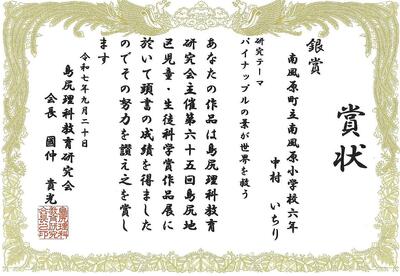 賞状
銀賞
南風原町立南風原小学校六年
中村 いちり
研究テーマ
パイナップルの葉が世界を救う
あなたの作品は島尻理科教育
研究会主催第六十五回島尻地
区児童・生徒科学賞作品展に
於いて頭書の成績を得ました
のでその努力を讃え之を賞し
ます
令和七年九月二十日
島尻理科教育研究会
会長 國仲 貴光